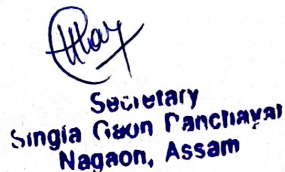 Secretary
Singia Gaon Panchayat
Nagaon, Assam